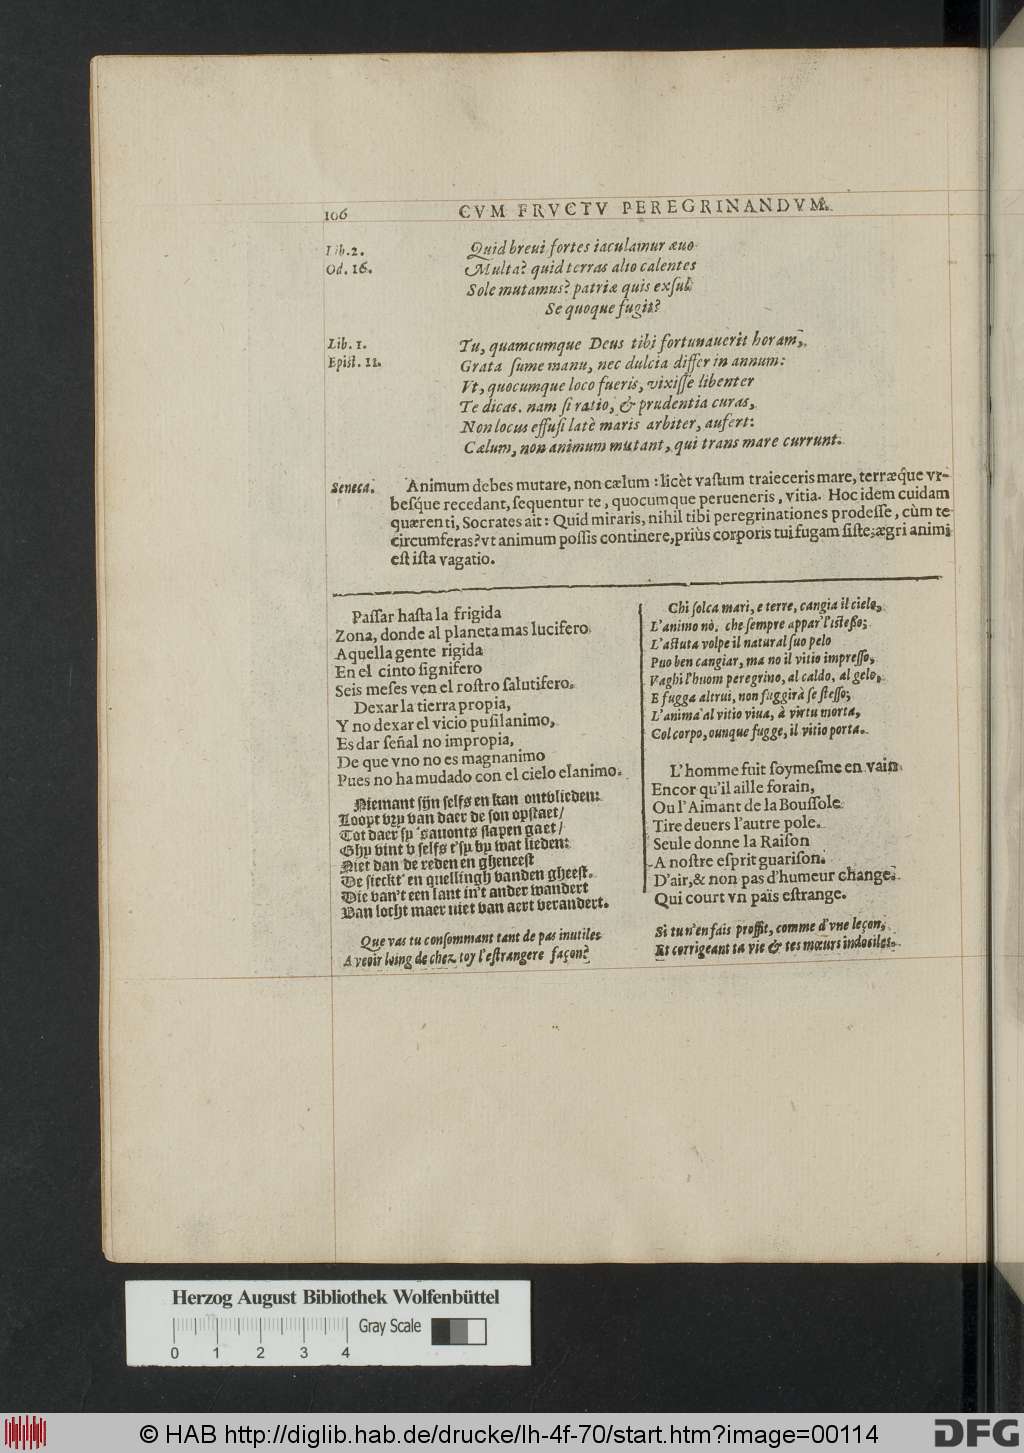 106
CVM FRVCTV PEREGRINANDVM.
Lib. 2.
Od. 16.
Quid breui fortes iaculamur æuo
Multa? quid terras alio calentes
Sole mutamus? patriæ quis exſul
Se quoque fugit?
Lib. 1.
Epiſt. 11.
Tu, quamcumque Deus tibi fortunauerit horam,
Grata ſume manu, nec dulcia differ in annum:
Vt, quocumque loco fueris, vixiſſe libenter
Te dicas. nam ſi ratio, & prudentia curas,
Non locus effuſi latè maris arbiter, aufert:
Cælum, non animum mutant, qui trans mare currunt.
Seneca.
Animum debes mutare, non cælum: licèt vaſtum traieceris mare, terræq́ue vr-
beſque recedant, ſequentur te, quocumque perueneris, vitia. Hoc idem cuidam
quærenti, Socrates ait: Quid miraris, nihil tibi peregrinationes prodeſſe, cùm te
circumferas? vt animum poſſis continere, priùs corporis tui fugam ſiſte; ægri animi
eſt iſta vagatio.
Paſſar haſta la frigida
Zona, donde al planeta mas lucifero
Aquella gente rigida
En el cinto ſignifero
Seis meſes ven el roſtro ſalutifero.
Dexar la tierra propia,
Y no dexar el vicio puſilanimo,
Es dar ſeñal no impropia,
De que vno no es magnanimo
Pues no ha mudado con el cielo el animo.
Niemant ſijn ſelfs en kan ontvlieden:
Loopt vry van daer de ſon opſtaet/
Tot daer ſy 'sauonts ſlapen gaet/
Ghy vint v ſelfs t'ſy by wat lieden:
Niet dan de reden en gheneeſt
De ſieckt' en quellingh vanden gheeſt.
Die van't een lant in't ander wandert
Van locht maer niet van aert verandert.
Que vas tu conſommant tant de pas inutiles
A veoir loing de chez toy l'eſtrangere façon?
Chi ſolca mari, e terre, cangia il cielo,
L'animo nò, che ſempre appar' l'iſteßo;
L'aſtuta volpe il natural ſuo pelo
Puo ben cangiar, ma no il vitio impreſſo,
Vaghi l'huom peregrino, al caldo, al gelo,
E fugga altrui, non fuggirà ſe ſteſſo;
L'anima al vitio viua, à virtu morta,
Col corpo, ounque fugge, il vitio porta.
L'homme fuit ſoymeſme en vain
Encor qu'il aille forain,
Ou l'Aimant de la Bouſſole
Tire deuers l'autre pole.
Seule donne la Raiſon
A noſtre eſprit guariſon.
D'air, & non pas d'humeur change,
Qui court vn païs eſtrange.
Si tu n'en fais proffit, comme d'vne leçon,
Et corrigeant ta vie & tes mœurs indociles.
Herzog August Bibliothek Wolfenbüttel
Gray Scale
0 1 2 3 4
© HAB http://diglib.hab.de/drucke/lh-4f-70/start.htm?image=00114
DFG